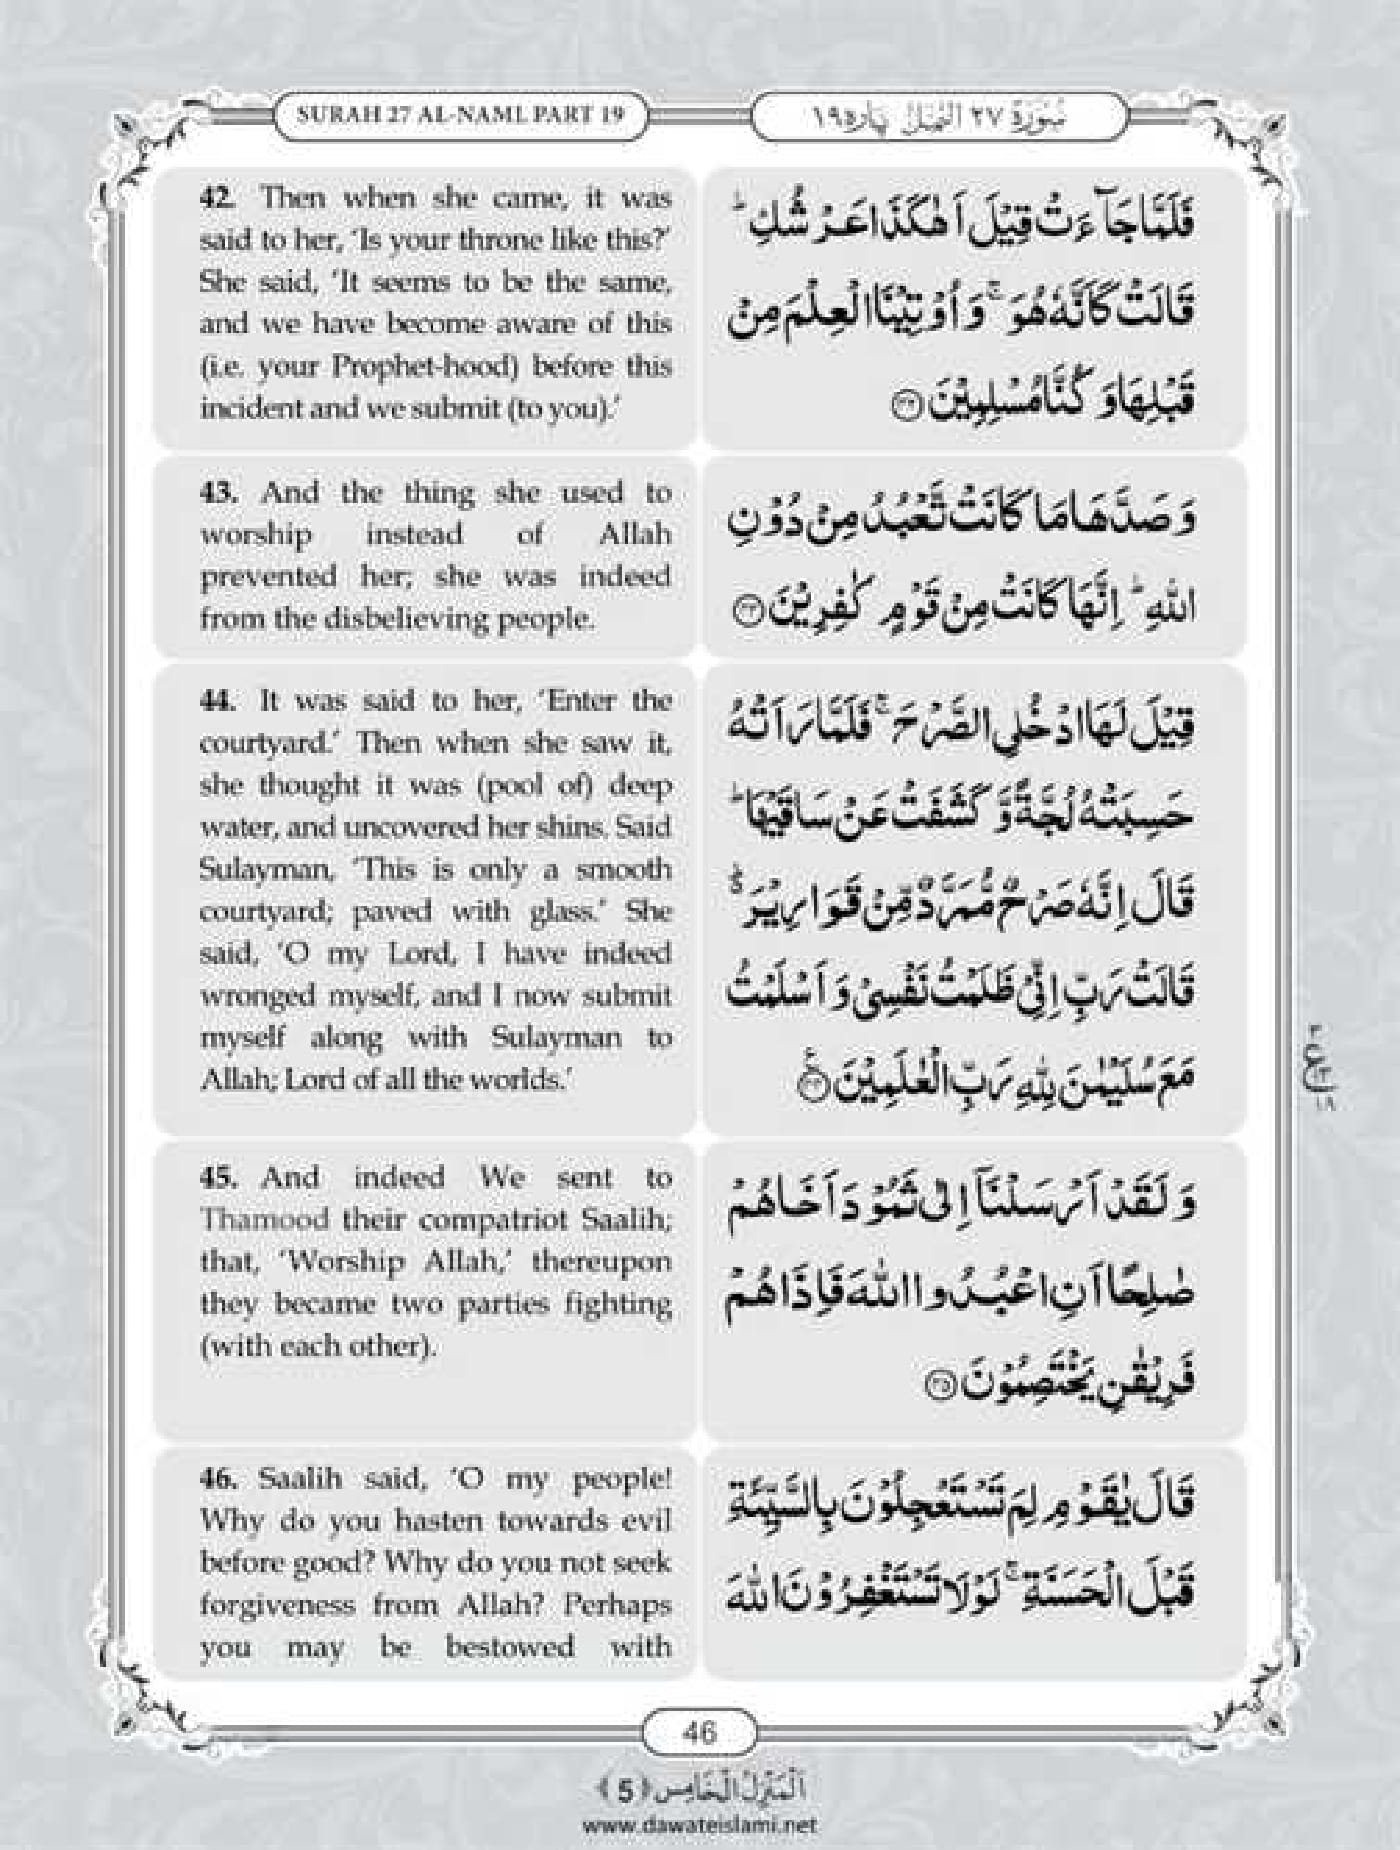 SURAH 27 AL-NAML PART 19
سُوْرَةُ ٢٧ النَّمْل پارہ ١٩
42. Then when she came, it was
said to her, ‘Is your throne like this?’
She said, ‘It seems to be the same,
and we have become aware of this
(i.e. your Prophet-hood) before this
incident and we submit (to you).’
فَلَمَّا جَآءَتْ قِيْلَ اَهٰكَذَا عَرْشُكِ ؕ
قَالَتْ كَاَنَّهٗ هُوَ ۚ وَ اُوْتِيْنَا الْعِلْمَ مِنْ
قَبْلِهَا وَ كُنَّا مُسْلِمِيْنَ ﴿٤٢﴾
43. And the thing she used to
worship instead of Allah
prevented her; she was indeed
from the disbelieving people.
وَ صَدَّهَا مَا كَانَتْ تَّعْبُدُ مِنْ دُوْنِ
اللّٰهِ ؕ اِنَّهَا كَانَتْ مِنْ قَوْمٍ كٰفِرِيْنَ ﴿٤٣﴾
44. It was said to her, ‘Enter the
courtyard.’ Then when she saw it,
she thought it was (pool of) deep
water, and uncovered her shins. Said
Sulayman, ‘This is only a smooth
courtyard; paved with glass.’ She
said, ‘O my Lord, I have indeed
wronged myself, and I now submit
myself along with Sulayman to
Allah; Lord of all the worlds.’
قِيْلَ لَهَا ادْخُلِي الصَّرْحَ ۚ فَلَمَّا رَاَتْهُ
حَسِبَتْهُ لُجَّةً وَّ كَشَفَتْ عَنْ سَاقَيْهَا ؕ
قَالَ اِنَّهٗ صَرْحٌ مُّمَرَّدٌ مِّنْ قَوَارِيْرَ ؕ
قَالَتْ رَبِّ اِنِّيْ ظَلَمْتُ نَفْسِيْ وَ اَسْلَمْتُ
مَعَ سُلَيْمٰنَ لِلّٰهِ رَبِّ الْعٰلَمِيْنَ ﴿٤٤﴾
45. And indeed We sent to
Thamood their compatriot Saalih;
that, ‘Worship Allah,’ thereupon
they became two parties fighting
(with each other).
وَ لَقَدْ اَرْسَلْنَاۤ اِلٰى ثَمُوْدَ اَخَاهُمْ
صٰلِحًا اَنِ اعْبُدُوا اللّٰهَ فَاِذَا هُمْ
فَرِيْقٰنِ يَخْتَصِمُوْنَ ﴿٤٥﴾
46. Saalih said, ‘O my people!
Why do you hasten towards evil
before good? Why do you not seek
forgiveness from Allah? Perhaps
you may be bestowed with
قَالَ يٰقَوْمِ لِمَ تَسْتَعْجِلُوْنَ بِالسَّيِّئَةِ
قَبْلَ الْحَسَنَةِ ۚ لَوْلَا تَسْتَغْفِرُوْنَ اللّٰهَ
46
اَلْمَنْزِلُ الْخَامِس ﴿5﴾
www.dawateislami.net